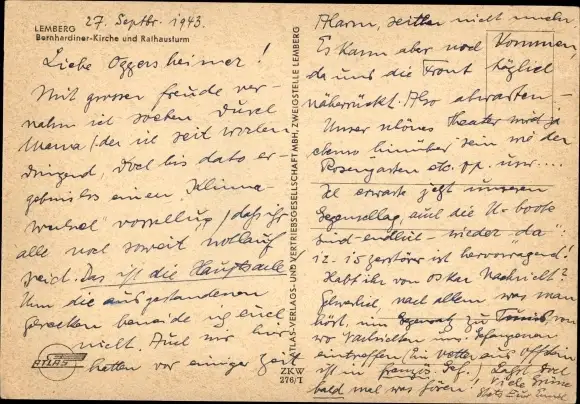 LEMBERG
Bernhardiner-Kirche und Rathausturm
27. Septbr. 1943.
Liebe Oggersheimer!
Mit grosser Freude ver-
nahm ich soeben durch
Mama (der ich seit Wochen
dringend, doch bis dato er-
gebnislos einen "Klima-
wechsel" vorschlug) dass ihr
alle noch soweit wohlauf
seid. Das ist die Hauptsache
Um die ausgestandenen
beneide ich euch
nicht. Auch wir hier
hatten vor einiger Zeit
ATLAS
ATLAS-VERLAGS- UND VERTRIEBSGESELLSCHAFT MBH, ZWEIGSTELLE LEMBERG
ZKW
276/I
Alarm, seither nicht mehr.
Es kann aber noch kommen,
da uns die Front täglich
näherrückt. Also abwarten -
Unser schönes Theater wird ja
ebenso hinüber sein wie der
Rosengarten etc. pp. usw...
Ich erwarte jetzt unseren
Gegenschlag, auch die U-boote
sind - endlich - wieder "da":
12.-15 zerstörer ist hervorragend!
Habt ihr von Oskar Nachricht?
nach allem, was man
hört, im Gegensatz zu Tunis, von
wo Nachrichten Gefangenen
eintreffen (Ein Vetter aus
ist in französ. Gef.) Lasst doch
bald mal was hören! Viele Grüsse
Stets Euer